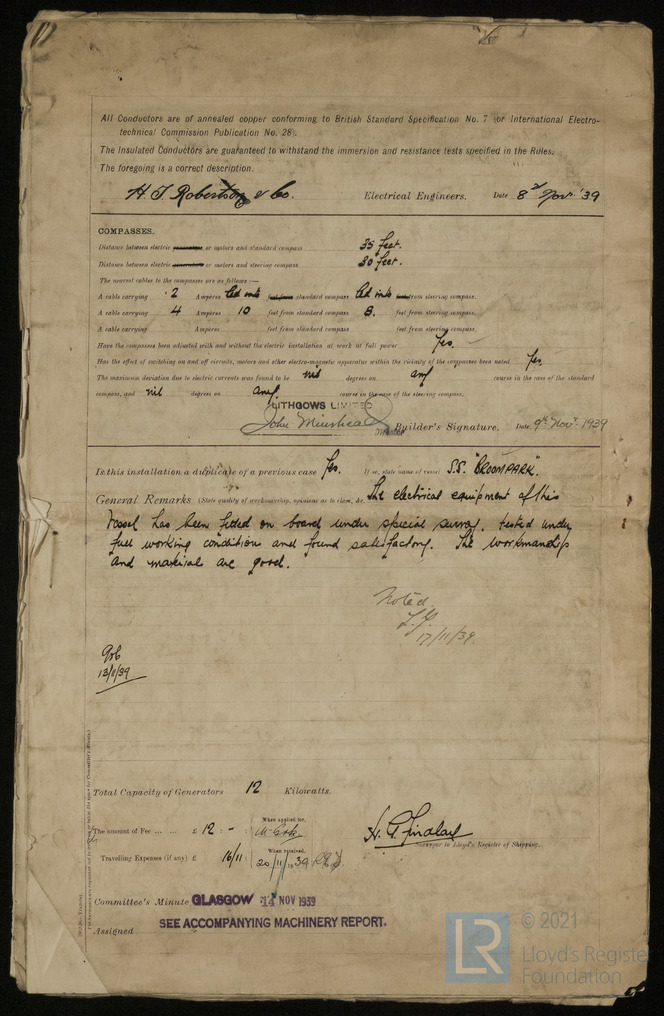 All Conductors are of annealed copper conforming to British Standard Specification No. 7 (or International Electro-
technical Commission Publication No. 28).
The Insulated Conductors are guaranteed to withstand the immersion and resistance tests specified in the Rules.
The foregoing is a correct description.
H. T. Robertson & Co. Electrical Engineers. Date 8th Novr. '39
COMPASSES.
Distance between electric generators or motors and standard compass 35 feet.
Distance between electric generators or motors and steering compass 30 feet.
The nearest cables to the compasses are as follows :—
A cable carrying 2 Amperes led into feet from standard compass led into feet from steering compass.
A cable carrying 4 Amperes 10 feet from standard compass 8. feet from steering compass.
A cable carrying Amperes feet from standard compass feet from steering compass.
Have the compasses been adjusted with and without the electric installation at work at full power Yes.
Has the effect of switching on and off circuits, motors and other electro-magnetic apparatus within the vicinity of the compasses been noted Yes.
The maximum deviation due to electric currents was found to be nil degrees on any course in the case of the standard
compass, and nil degrees on any course in the case of the steering compass.
LITHGOWS LIMITED
John Builder's Signature. Date 9th Novr. 1939
Is this installation a duplicate of a previous case Yes. If so, state name of vessel S.S. "BROOMPARK".
General Remarks (State quality of workmanship, opinions as to class, &c. The electrical equipment of this
vessel has been fitted on board under special survey, tested under
full working condition and found satisfactory. The workmanship
and material are good.
Noted
17/11/39.
13/11/39
Total Capacity of Generators 12 Kilowatts.
The amount of Fee ... ... £ 12 : - : When applied for,
H. G. Findlay
Surveyor to Lloyd's Register of Shipping.
Travelling Expenses (if any) £ 16/11 : When received, 20/11/1939
Committee's Minute GLASGOW 14 NOV 1939
SEE ACCOMPANYING MACHINERY REPORT.
Assigned
LR © 2021
Lloyd's Register
Foundation